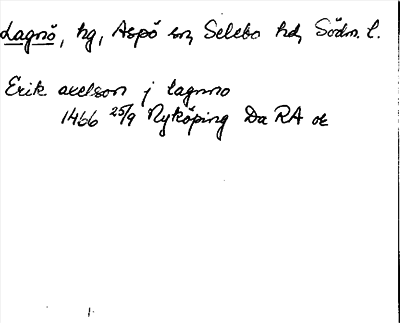 Lagnö, hg, Aspö sn, Selebo hd, Södm. l.
Erik axelson j lagnno
1466 25/9 Nyköping Da RA or